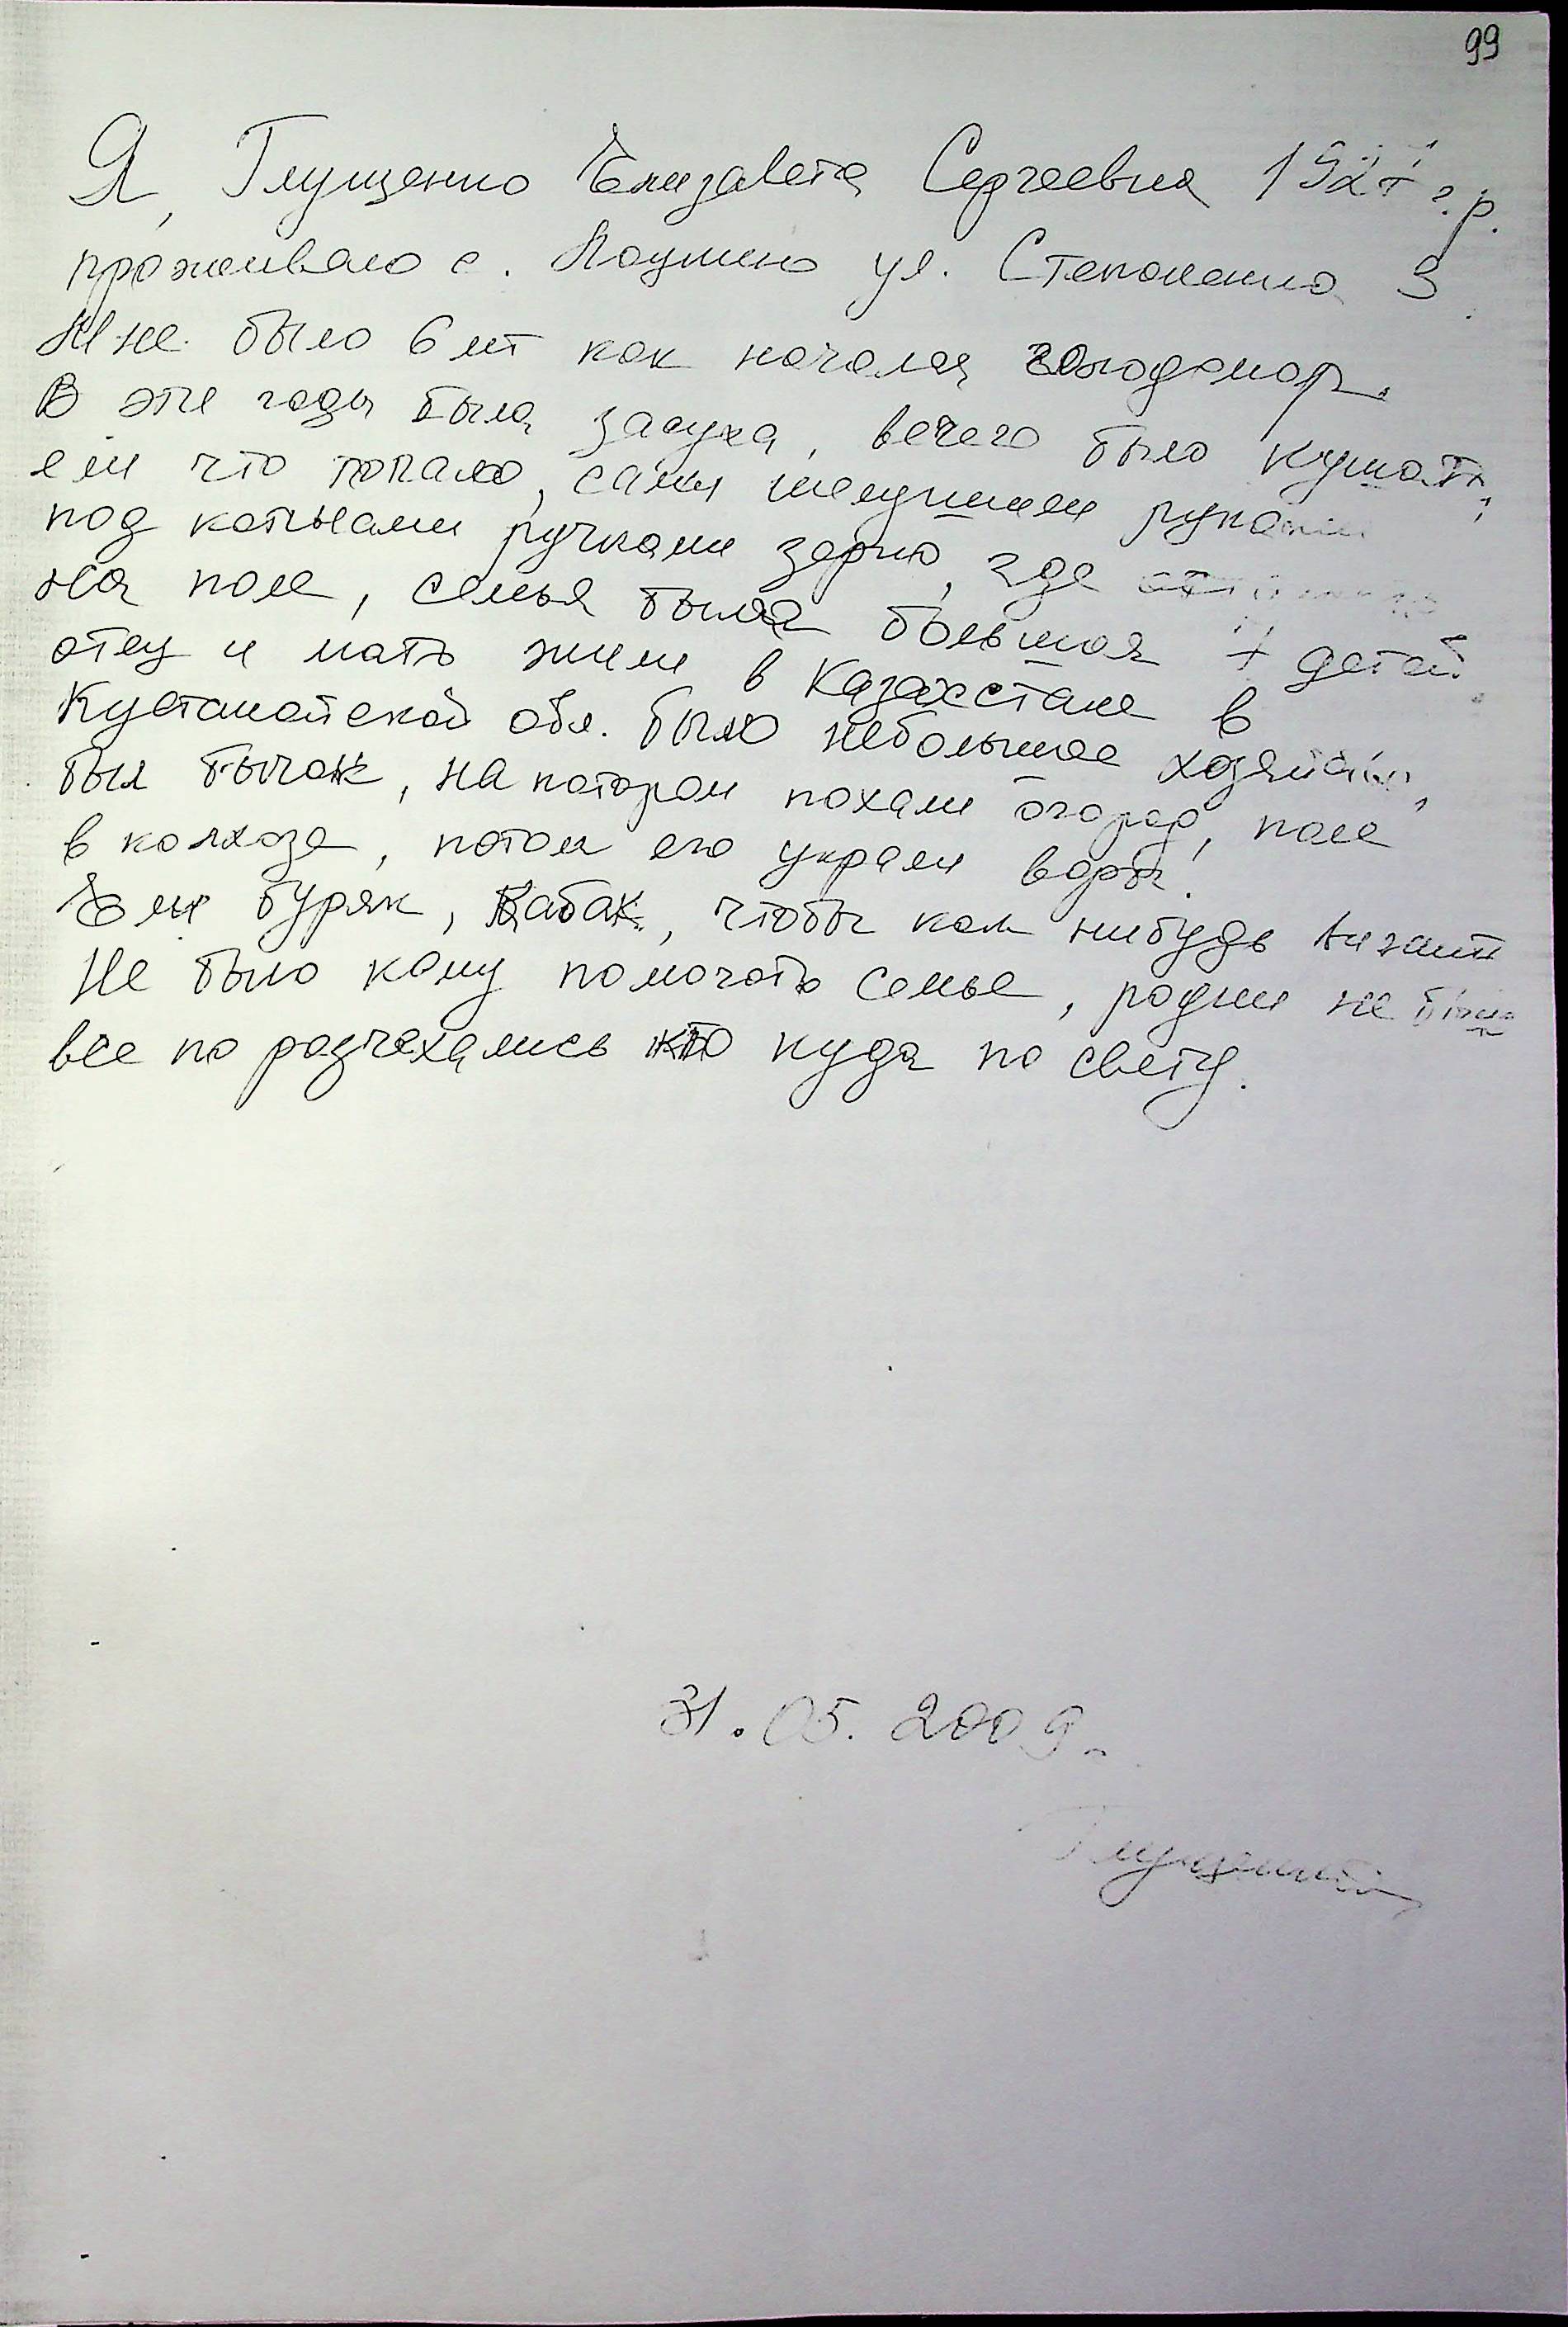 99
Я, Глущенко Елизавета Сергеевна 1927 г.р.
проживаю с. ул. Степаненко 3
Мне было 6 лет как начался голодомор.
В эти годы была засуха, нечего было кушать,
ели что попало, сами шелушили руками
под копнами ручками зерно, где
на поле, семья была большая 7 детей.
отец и мать жили в Казахстане в
Кустанайской обл. было небольшое хозяйство,
был бычок, на котором пахали огород, поле
в колхозе, потом его украли воры.
Ели буряк, кабак, чтобы как нибудь выжить
Не было кому помогать семье, родни не было
все по разъехались кто куда по свету.
31.05.2009.
Глущенко